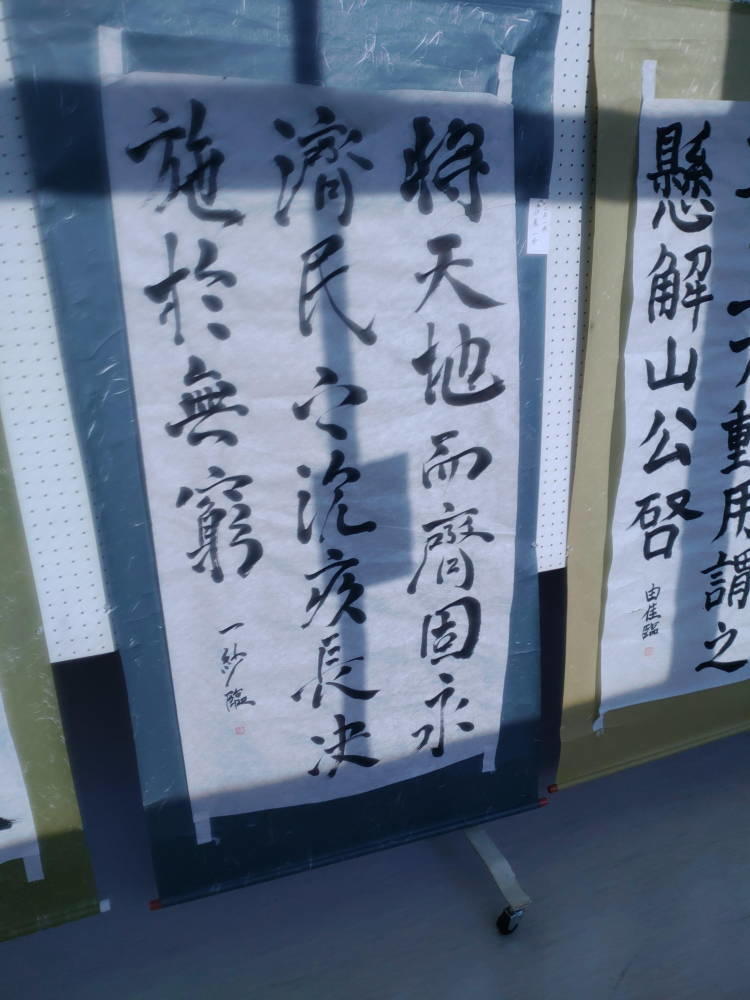 動用謂之
懸解山公啓
由佳臨
将天地而齊固永
濟民之沉疾長决
施於無窮
一紗臨